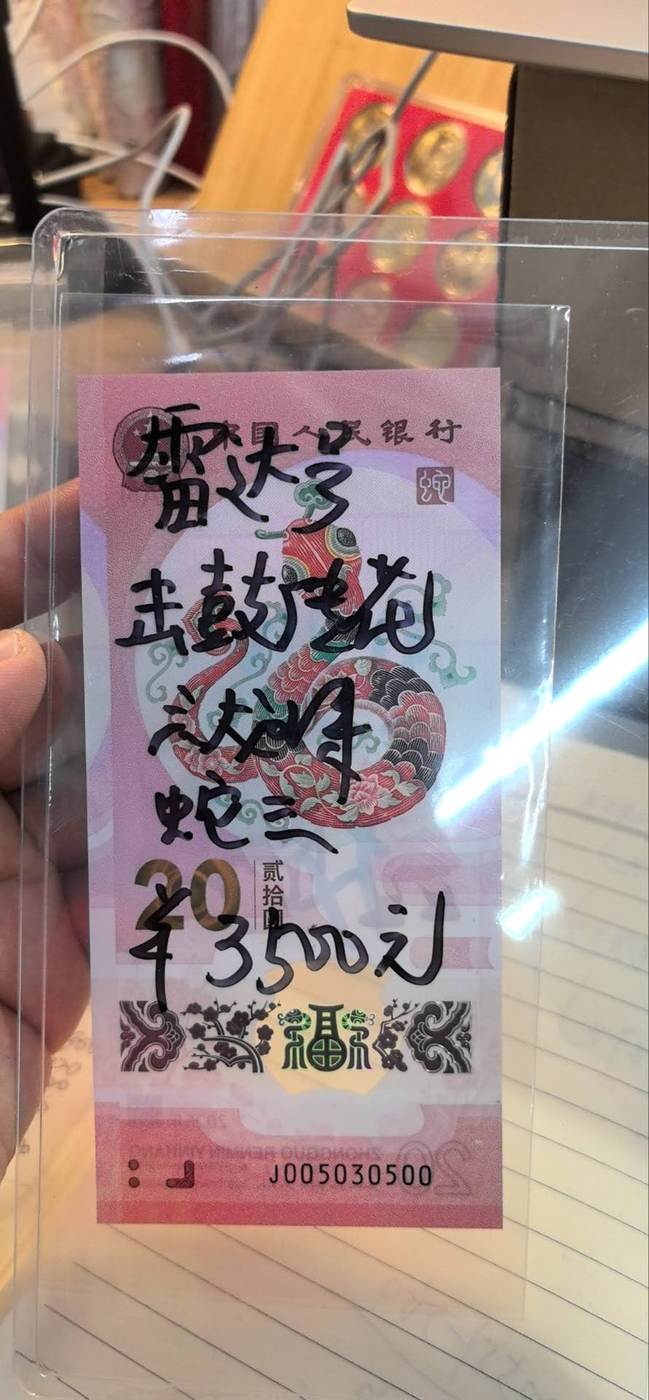 中国人民银行
蛇
雷达号
击鼓传花
三大
蛇三
20 贰拾圆
¥3500元
福
ZHONGGUO RENMIN YINHANG
20
J005030500